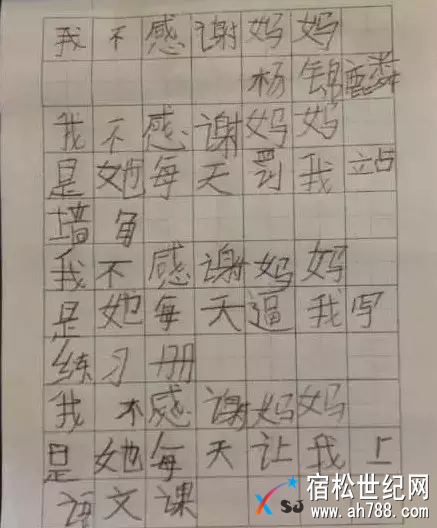 我不感谢妈妈
杨锦麟
我不感谢妈妈
是她每天罚我站
墙角
我不感谢妈妈
是她每天逼我写
练习册
我不感谢妈妈
是她每天让我上
语文课
XSJ 宿松世纪网
www.ah788.com